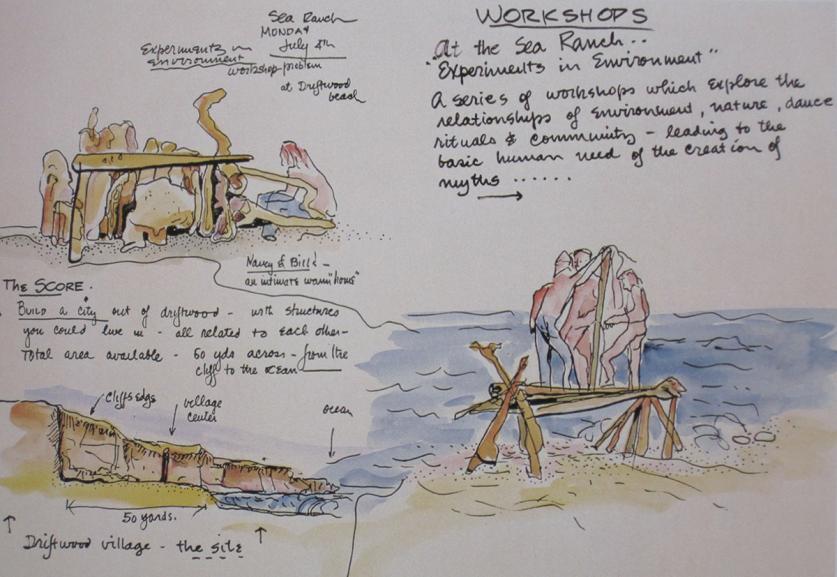 Sea Ranch
MONDAY
July 8th
Experiments in
environment
workshop-problem
at Driftwood
beach
WORKSHOPS
At the Sea Ranch..
"Experiments in Environment"
A series of workshops which explore the
relationships of environment, nature, dance
rituals & community - leading to the
basic human need of the creation of
myths ......
Nancy & Bill's -
an intimate warm "home"
The SCORE.
Build a city out of driftwood - with structures
you could live in - all related to each other -
Total area available - 50 yds across - from the
cliff to the ocean
cliffs edge
village
center
ocean
50 yards.
Driftwood village - the site